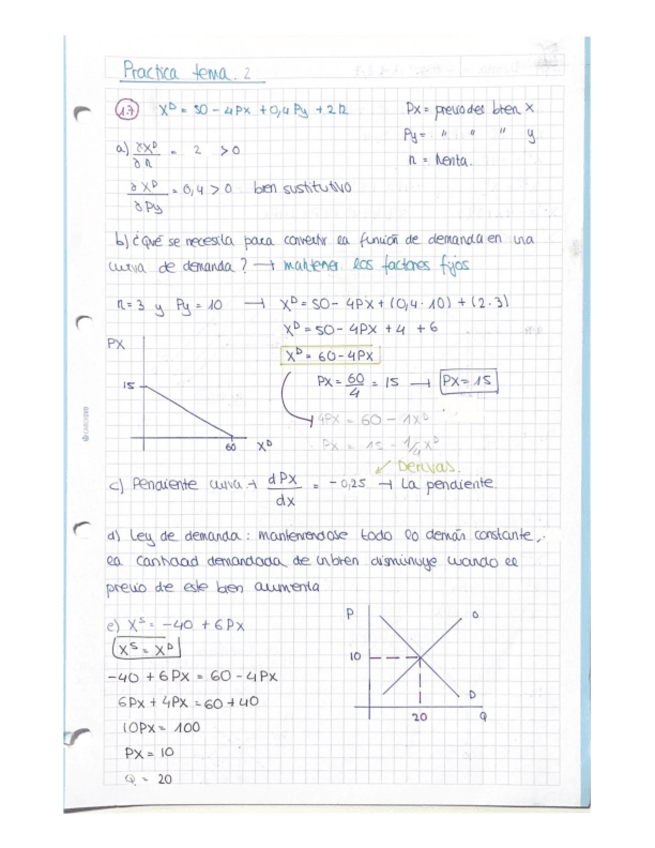 Practica tema. 2
17 X^D = 50 - 4Px + 0,4Py + 2n
Px = precio des bien x
Py = " " " y
n = Renta.
a) ∂X^D/∂n = 2 > 0
∂X^D/∂Py = 0,4 > 0 bien sustitutivo
b) ¿Qué se necesita para convertir la función de demanda en una
curva de demanda? → mantener los factores fijos
n = 3 y Py = 10 → X^D = 50 - 4Px + (0,4·10) + (2·3)
X^D = 50 - 4Px + 4 + 6
X^D = 60 - 4Px
Px = 60/4 = 15 → Px = 15
4Px = 60 - 1X^D
Px = 15 - 1/4 X^D
PX
15
60 X^D
Derivas.
c) Pendiente curva → dPx/dx = -0,25 → La pendiente
d) Ley de demanda: manteniendose todo lo demás constante,
la cantidad demandada de un bien disminuye cuando el
precio de este bien aumenta
e) X^S = -40 + 6Px
X^S = X^D
-40 + 6Px = 60 - 4Px
6Px + 4Px = 60 + 40
10Px = 100
Px = 10
Q = 20
P
O
10
D
20
Q